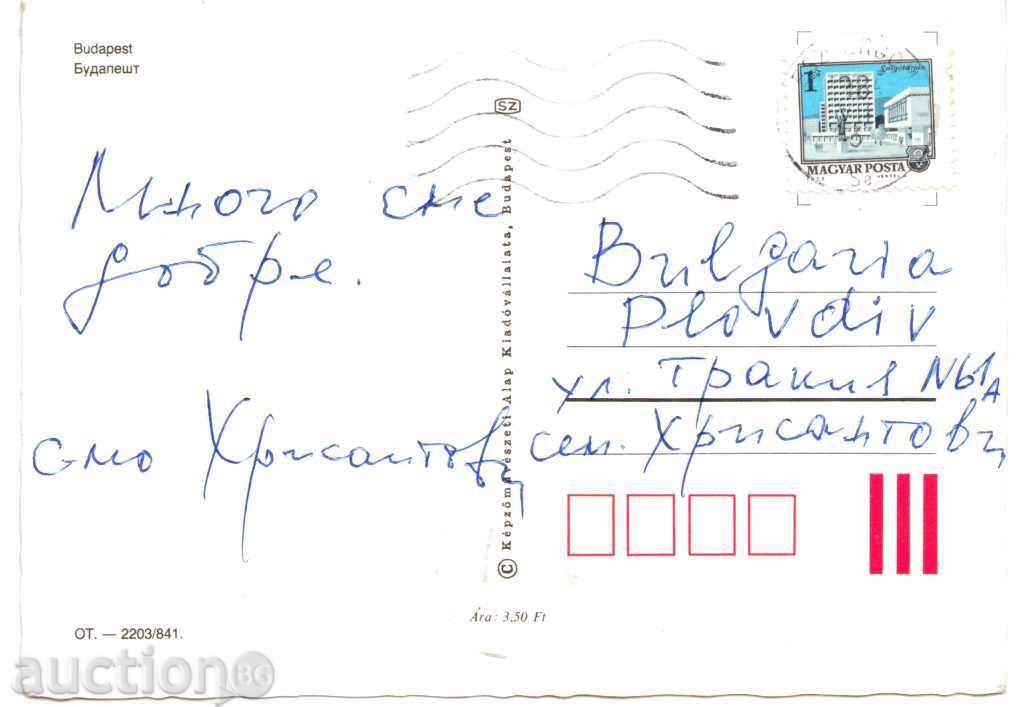 Budapest
Будапешт
Много сме
добре.
смо Хрисантовци
SZ
© Képzőművészeti Alap Kiadóvállalata, Budapest
1Ft
Salgótarján
MAGYAR POSTA
1973
Bulgaria
Plovdiv
ул. Тракия №61А
сем. Хрисантовци
Ára: 3,50 Ft
OT. — 2203/841.
auction BG